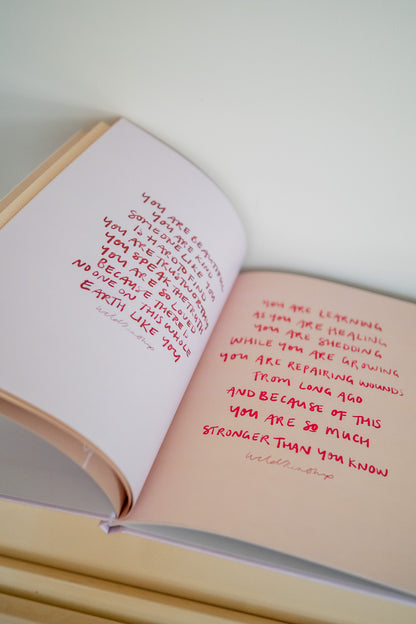 YOU ARE BEAUTIFUL
YOU ARE KIND
SOMEONE LIKE YOU
IS HARD TO FIND
YOU ARE TRUSTWORTHY
YOU SPEAK THE TRUTH
YOU ARE SO LOVELY
BECAUSE THERE IS
NO ONE ON THIS WHOLE
EARTH LIKE YOU
wildhinshop
YOU ARE LEARNING
AS YOU ARE HEALING
YOU ARE SHEDDING
WHILE YOU ARE GROWING
YOU ARE REPAIRING WOUNDS
FROM LONG AGO
AND BECAUSE OF THIS
YOU ARE SO MUCH
STRONGER THAN YOU KNOW
wildhinshop